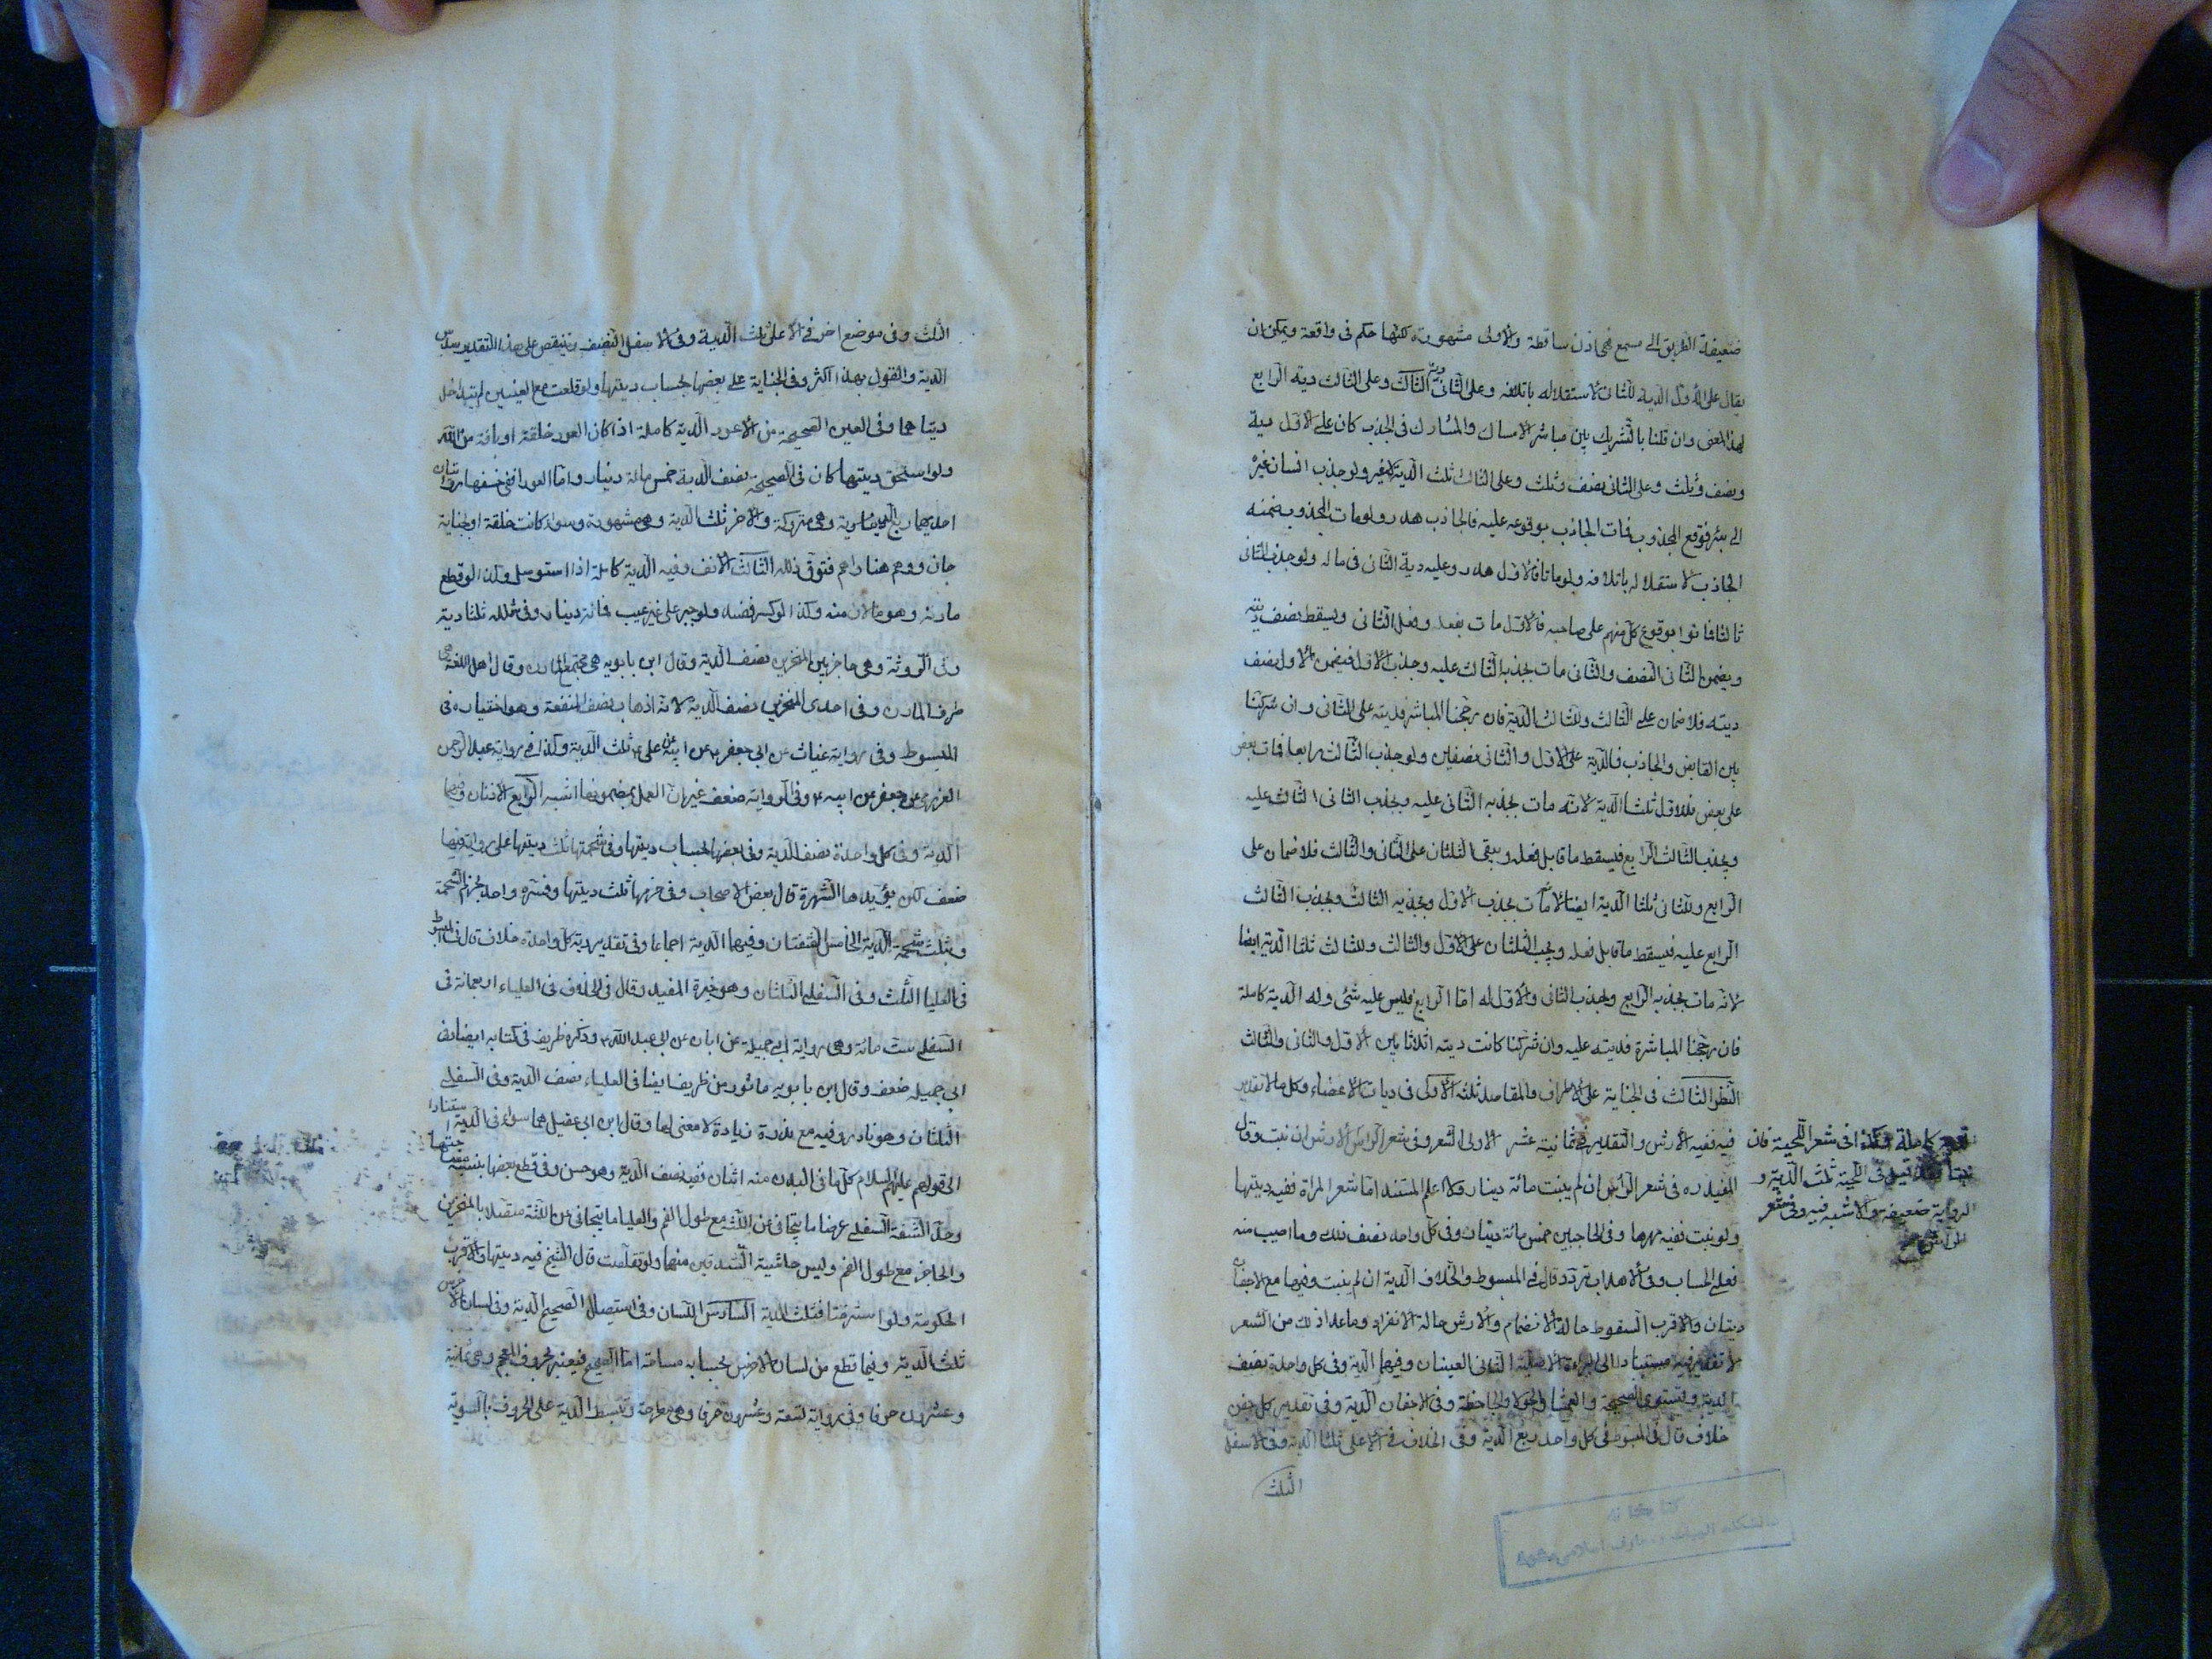 ضعيفة الطريق الى مسمع فهى اذن ساقطة والاولى مشهورة لكنها حكم فى واقعة ويمكن ان
يقال على الاول الدية للثانى لاستقلاله باتلافه وعلى الثانى دية الثالث وعلى الثالث دية الرابع
لهذا المعنى وان قلنا بالتشريك بين مباشر الامساك والمشارك فى الجذب كان على الاول دية
ونصف وثلث وعلى الثانى نصف وثلث وعلى الثالث ثلث الدية لاغير ولو جذب انسان غيره
الى بئر فوقع المجذوب فمات الجاذب بوقوعه عليه فالجاذب هدر ولو مات المجذوب ضمنه
الجاذب لاستقلاله باتلافه ولو ماتا فالاول هدر وعليه دية الثانى فى ماله ولو جذب الثانى
ثالثا فماتوا بوقوع كل منهم على صاحبه فالاول مات بفعله وفعل الثانى ويسقط نصف ديته
ويضمن الثانى النصف والثانى مات بجذبه الثالث عليه وجذب الاول فيضمن الاول نصف
ديته فلا ضمان على الثالث وللثالث الدية فان رجحنا المباشر فديته على الثانى وان شركنا
بين القابض والجاذب فالدية على الاول والثانى نصفين ولو جذب الثالث رابعا فمات بعض
على بعض فللاول ثلثا الدية لانه مات بجذبه الثانى عليه وبجذب الثانى الثالث عليه
وبجذب الثالث الرابع فيسقط ما قابل فعله ويبقى الثلثان على الثانى والثالث فلا ضمان على
الرابع وللثانى ثلثا الدية ايضا لانه مات بجذب الاول وبجذبه الثالث وبجذب الثالث
الرابع عليه فيسقط ما قابل فعله ويجب الثلثان على الاول والثالث وللثالث ثلثا الدية ايضا
لانه مات بجذبه الرابع وبجذب الثانى والاول له اما الرابع فليس عليه شئ وله الدية كاملة
فان رجحنا المباشرة فديته عليه وان شركنا كانت ديته اثلاثا بين الاول والثانى والثالث
النظر الثالث فى الجناية على الاطراف والمقاصد ثلثة الاول فى ديات الاعضاء وكل ما لا تقدير
فيه ففيه الارش والتقدير فى ثمانية عشر الاول الشعر وفى شعر الراس الارش ان نبت وقال
المفيد ره فى شعر الراس ان لم ينبت مائة دينار ولا اعلم المستند اما شعر المراة ففيه ديتها
ولو نبت ففيه مهرها وفى الحاجبين خمس مائة دينار وفى كل واحد نصف ذلك وما اصيب منه
فعلى الحساب وفى الاهداب تردد قال فى المبسوط والخلاف الدية ان لم ينبت وفيها مع الاجفان
ديتان والاقرب السقوط حالة الانضمام والارش حالة الانفراد وما عدا ذلك من الشعر
لا تقدير فيه مستنادا الى البراءة الاصلية الثانى العينان وفيهما الدية وفى كل واحدة نصف
الدية ويستوى الصحيحة والعمشا والحولا والجاحظة وفى الاجفان الدية وفى تقدير كل جفن
خلاف قال فى المبسوط فى كل واحد ربع الدية وفى الخلاف فى الاعلى ثلثا الدية وفى الاسفل
الثلث
كاملة وكذا فى شعر اللحية فان
نبتا فقد قيل فى اللحية ثلث الدية و
الرواية ضعيفة والاشبه فيه وفى شعر
كتابخانه
دانشكده الهيات و معارف اسلامى مشهد
الثلث وفى موضع اخر فى الاعلى ثلث الدية وفى الاسفل النصف فينقص على هذا التقدير سدس
الدية والقول بهذا اكثر وفى الجناية على بعضها بحساب ديتها ولو قلعت مع العينين لم تتداخل
ديتاهما وفى العين الصحيحة من الاعور الدية كاملة اذا كان العور خلقة او بافة من الله
ولو استحق ديتها كان فى الصحيحة نصف الدية خمس مائة دينار واما العورا ففى خسفها روايتان
احديهما ربع الدية وهى متروكة والاخرى ثلث الدية وهى مشهورة وسواء كانت خلقة او بجناية
جان ووهم هنا واهم فتوق ذلله الثالث الانف وفيه الدية كاملة اذا استوصل وكذا لو قطع
مارنه وهو ما لان منه وكذا لو كسر ففسد ولو جبر على غير عيب فمائة دينار وفى شلله ثلثا ديته
وفى الروثة وهى حاجز بين المنخرين نصف الدية وقال ابن بابويه هى مجتمع المارن وقال اهل اللغة هى
طرف المارن وفى احدى المنخرين نصف الدية لانه اذهاب نصف المنفعة وهو اختياره فى
المبسوط وفى رواية غياث عن ابى جعفر ع عن ابيه عن على ع ثلث الدية وكذا فى رواية عبد الرحمن
العزرمى عن جعفر عن ابيه ع وفى الرواية ضعف غير ان العمل بمضمونها اشبه الرابع الاذنان وفيهما
الدية وفى كل واحدة نصف الدية وفى بعضها بحساب ديتها وفى شحمتها ثلث ديتها على رواية فيها
ضعف لكن يؤيدها الشهرة قال بعض الاصحاب وفى خرمها ثلث ديتها وفسره واحد بخرم الشحمة
وبثلث دية الشحمة الخامس الشفتان وفيهما الدية اجماعا وفى تقدير دية كل واحدة خلاف قال فى المبسوط
فى العليا الثلث وفى السفلى الثلثان وهو خيرة المفيد وقال فى الخلاف فى العلياء اربعمائة فى
السفلى ست مائة وهى رواية ابى جميلة عن ابان عن ابى عبد الله ع وذكره ظريف فى كتابه ايضا وفى
ابى جميلة ضعف وقال ابن بابويه ماثور من ظريف ايضا فى العلياء نصف الدية وفى السفلى
الثلثان وهو نادر وفيه مع ندرة زيادة لا معنى لها وقال ابن ابى عقيل هما سواء فى الدية استنادا
الى قولهم عليهم السلام كل ما فى البدن منه اثنان ففيه نصف الدية وهو حسن وفى قطع بعضها بنسبة مساحتها
وحد الشفة السفلى عرضا ما تجافى عن اللثة مع طول الفم والعليا ما تجافى عن اللثة متصلا بالمنخرين
والحاجز مع طول الفم وليس حاشية الشدقين منهما ولو تقلصت قال الشيخ فيه ديتها والاقرب
الحكومة ولو استرختا فثلثا الدية السادس اللسان وفى استيصال الصحيح الدية وفى لسان الاخرس
ثلث الدية وفيما قطع من لسان الاخرس بحسابه مساحة اما الصحيح فيعتبر بحروف المعجم وهى ثمانية
وعشرون حرفا وفى رواية تسعة وعشرون حرفا وهى مطرحة وتبسط الدية على الحروف بالسوية